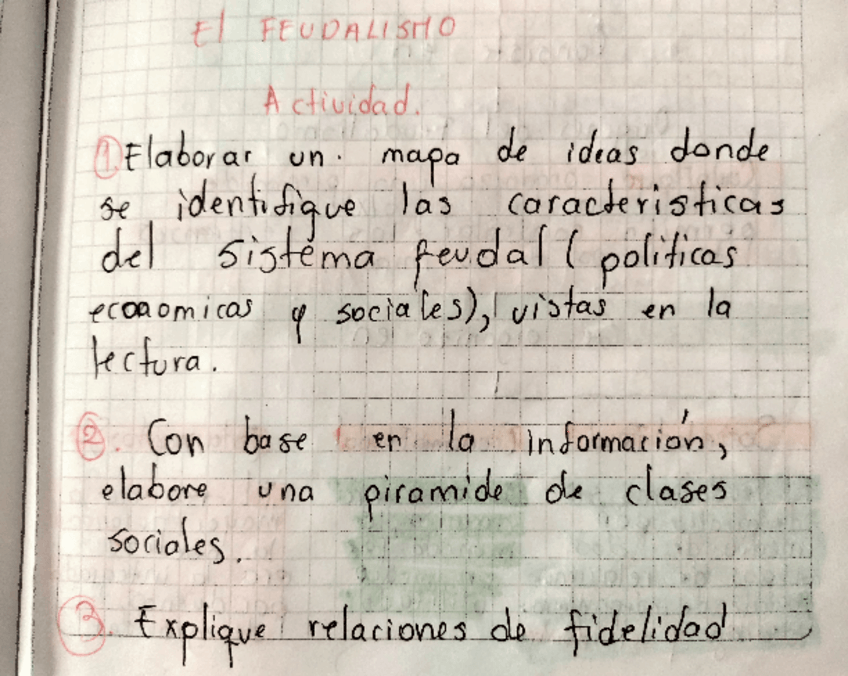 El FEUDALISMO
Actividad.
①Elaborar un. mapa de ideas donde
se identifique las caracteristicas
del sistema feudal ( politicas
economicas y sociales), vistas en la
lectura.
②. Con base en la información,
elabore una piramide de clases
sociales.
③. Explique relaciones de fidelidad